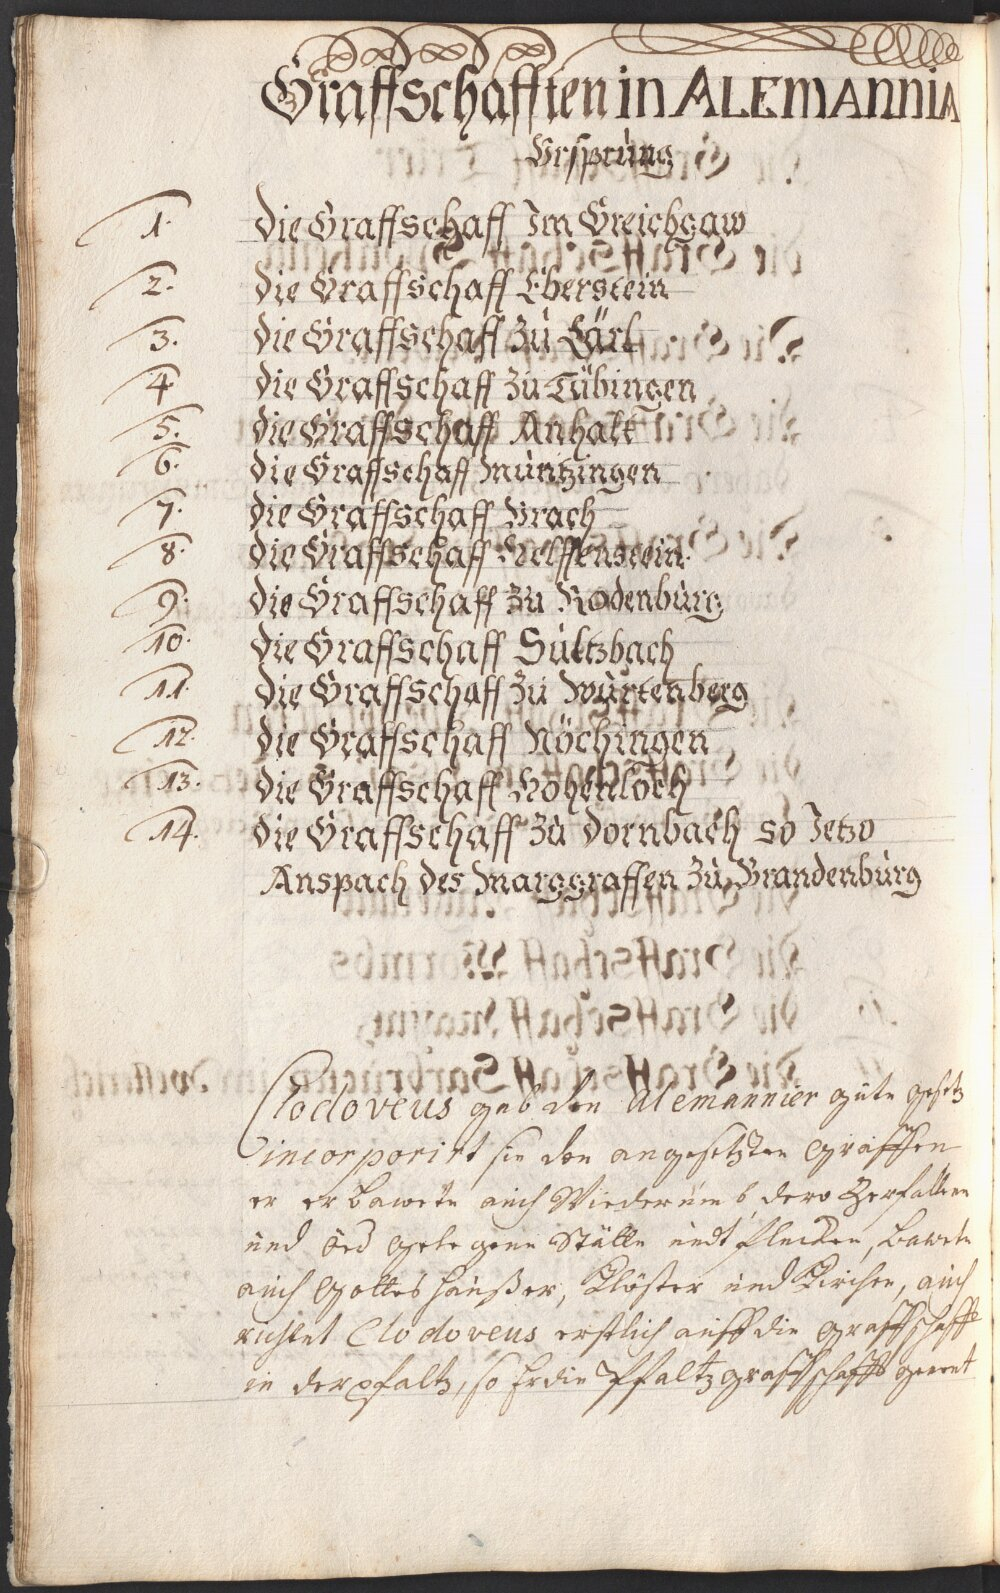 Graffschafften in ALEMANNIA
Ursprung
1. die Graffschaff Im Greichgaw
2. die Graffschaff Eberstein
3. die Graffschaff zu
4 die Graffschaff zu Tübingen
5. die Graffschaff Anhalt
6. die Graffschaff Müntzingen
7. die Graffschaff Urach
8. die Graffschaff Helffenstein.
9. die Graffschaff zu Rodenburg
10. die Graffschaff Sultzbach
11. die Graffschaff zu Würtenberg
12. die Graffschaff Nöchingen
13. die Graffschaff Hohenloch
14. die Graffschaff zu Dornbach so Jetzo
Anspach des Marggraffen zu Brandenburg
Clodoveus gab den Alemannier gute gesetz
incorporirt sie den angesetzten Graffen
er erbawete auch Wiederumb, dero Zerfallene
und öed gelegene Stätte undt flecken, bawete
auch Gottes häußer, Klöster und Kirchen, auch
richtet Clodoveus erstlich auff die Graffschafft
in der pfaltz, so Er die Pfaltzgraffschafft genent